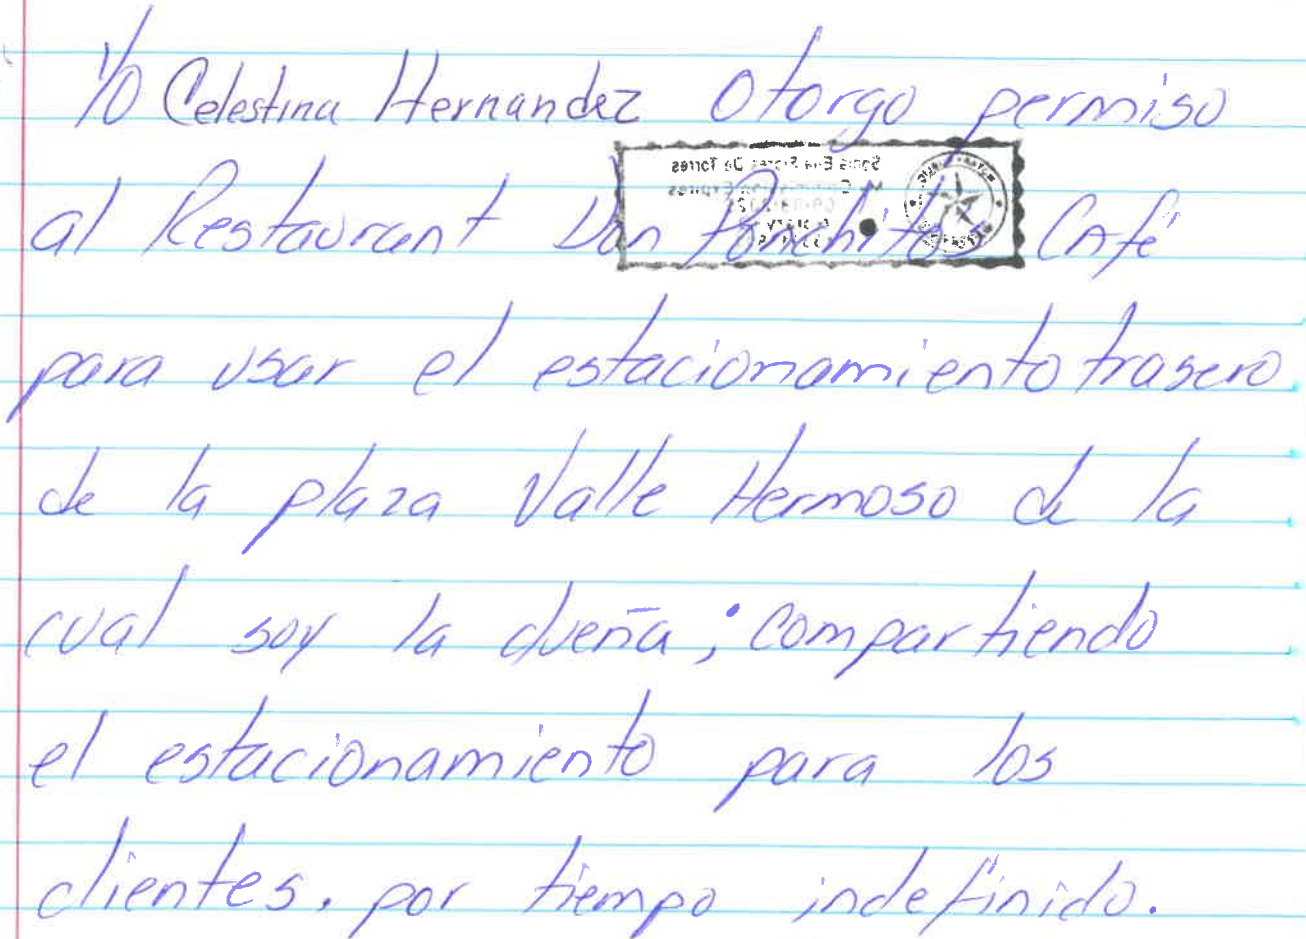 Yo Celestina Hernandez otorgo permiso
al Restaurant Don Ponchitos Café
para usar el estacionamiento trasero
de la plaza Valle Hermoso de la
cual soy la dueña; compartiendo
el estacionamiento para los
clientes. por tiempo indefinido.